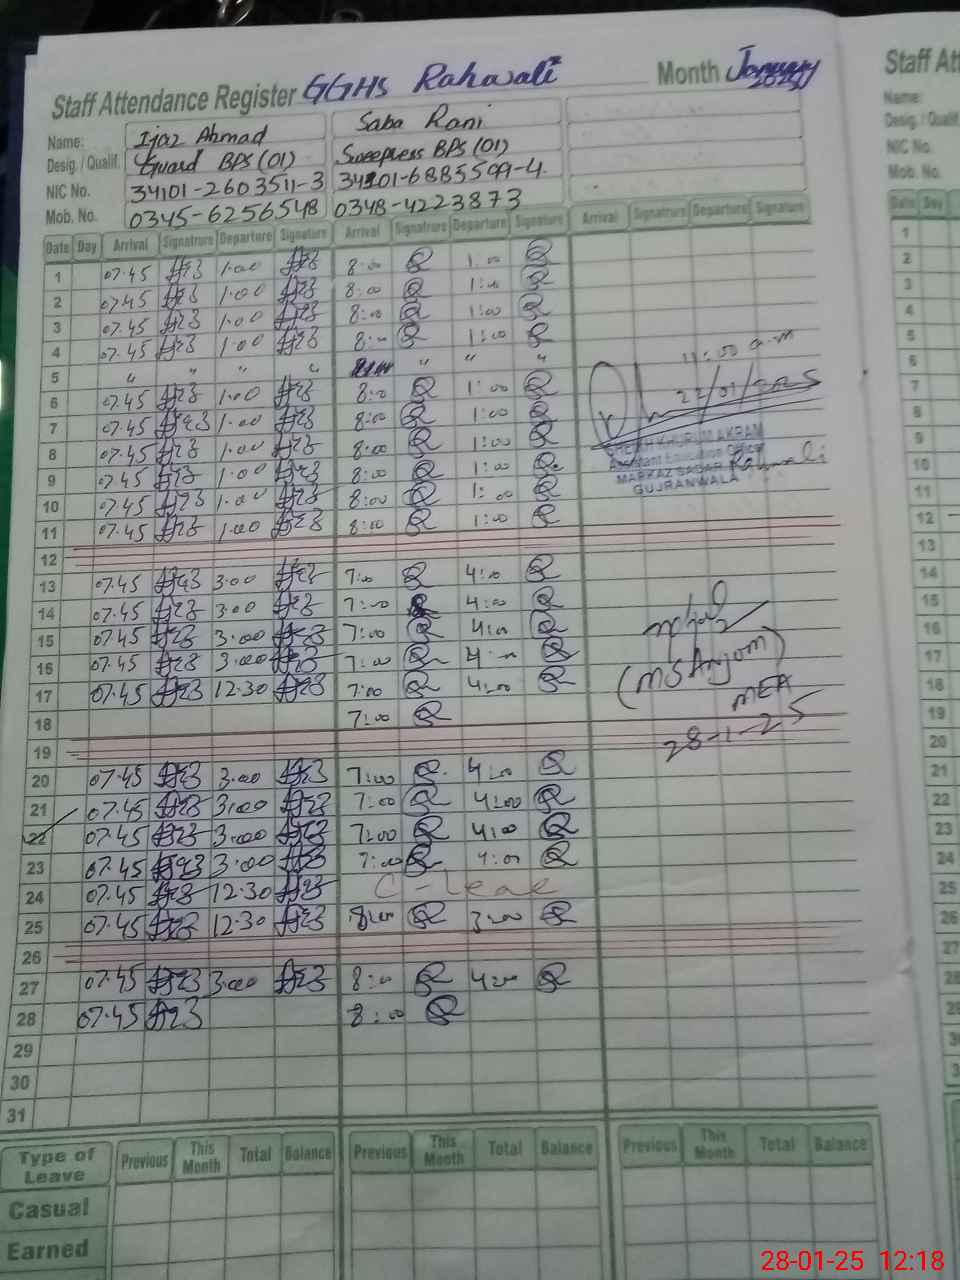 Staff Attendance Register GGHS Rahwali Month January 2025
Staff Att
Name: Ijaz Ahmad Saba Rani
Name:
Desig. / Qualif. Guard BPS (01) Sweepress BPS (01)
Desig. / Qualif.
NIC No. 34101-2603511-3
NIC No.
Mob. No. 0345-6256548 0348-4223873
Mob. No.
Date Day Arrival Signatrure Departure Signature Arrival Signatrure Departure Signature Arrival Signatrure Departure Signature
Date Day
1 07.45 1.00 8:00 1:00
2 07.45 1.00 8:00 1:00
3 07.45 1.00 8:00 1:00
4 07.45 1.00 8:00 1:00
5 " " " " " " "
6 07.45 1.00 8:00 1:00
7 07.45 1.00 8:00 1:00
8 07.45 1.00 8:00 1:00
9 07.45 1.00 8:00 1:00
10 07.45 1.00 8:00 1:00
11 07.45 1.00 8:00 1:00
12
13 07.45 3.00 7:00 4:00
14 07.45 3.00 7:00 4:00
15 07.45 3.00 7:00 4:00
16 07.45 3.00 7:00 4:00
17 07.45 12.30 7:00 4:00
18 7:00
19
20 07.45 3.00 7:00 4:00
21 07.45 3.00 7:00 4:00
22 07.45 3.00 7:00 4:00
23 07.45 3.00 7:00 4:00
24 07.45 12.30 C-leae
25 07.45 12.30 8:00 3:00
26
27 07.45 3.00 8:00 4:00
28 07.45 8:00
29
30
31
11:00 a.m
22/01/2025
SHEIKH KHURUM AKRAM
Assistant Education Officer
MARKAZ SADAR Rahwali
GUJRANWALA
(MS Anjom)
MEA
28-1-25
Type of Leave Previous This Month Total Balance Previous This Month Total Balance Previous This Month Total Balance
Casual
Earned
28-01-25 12:18